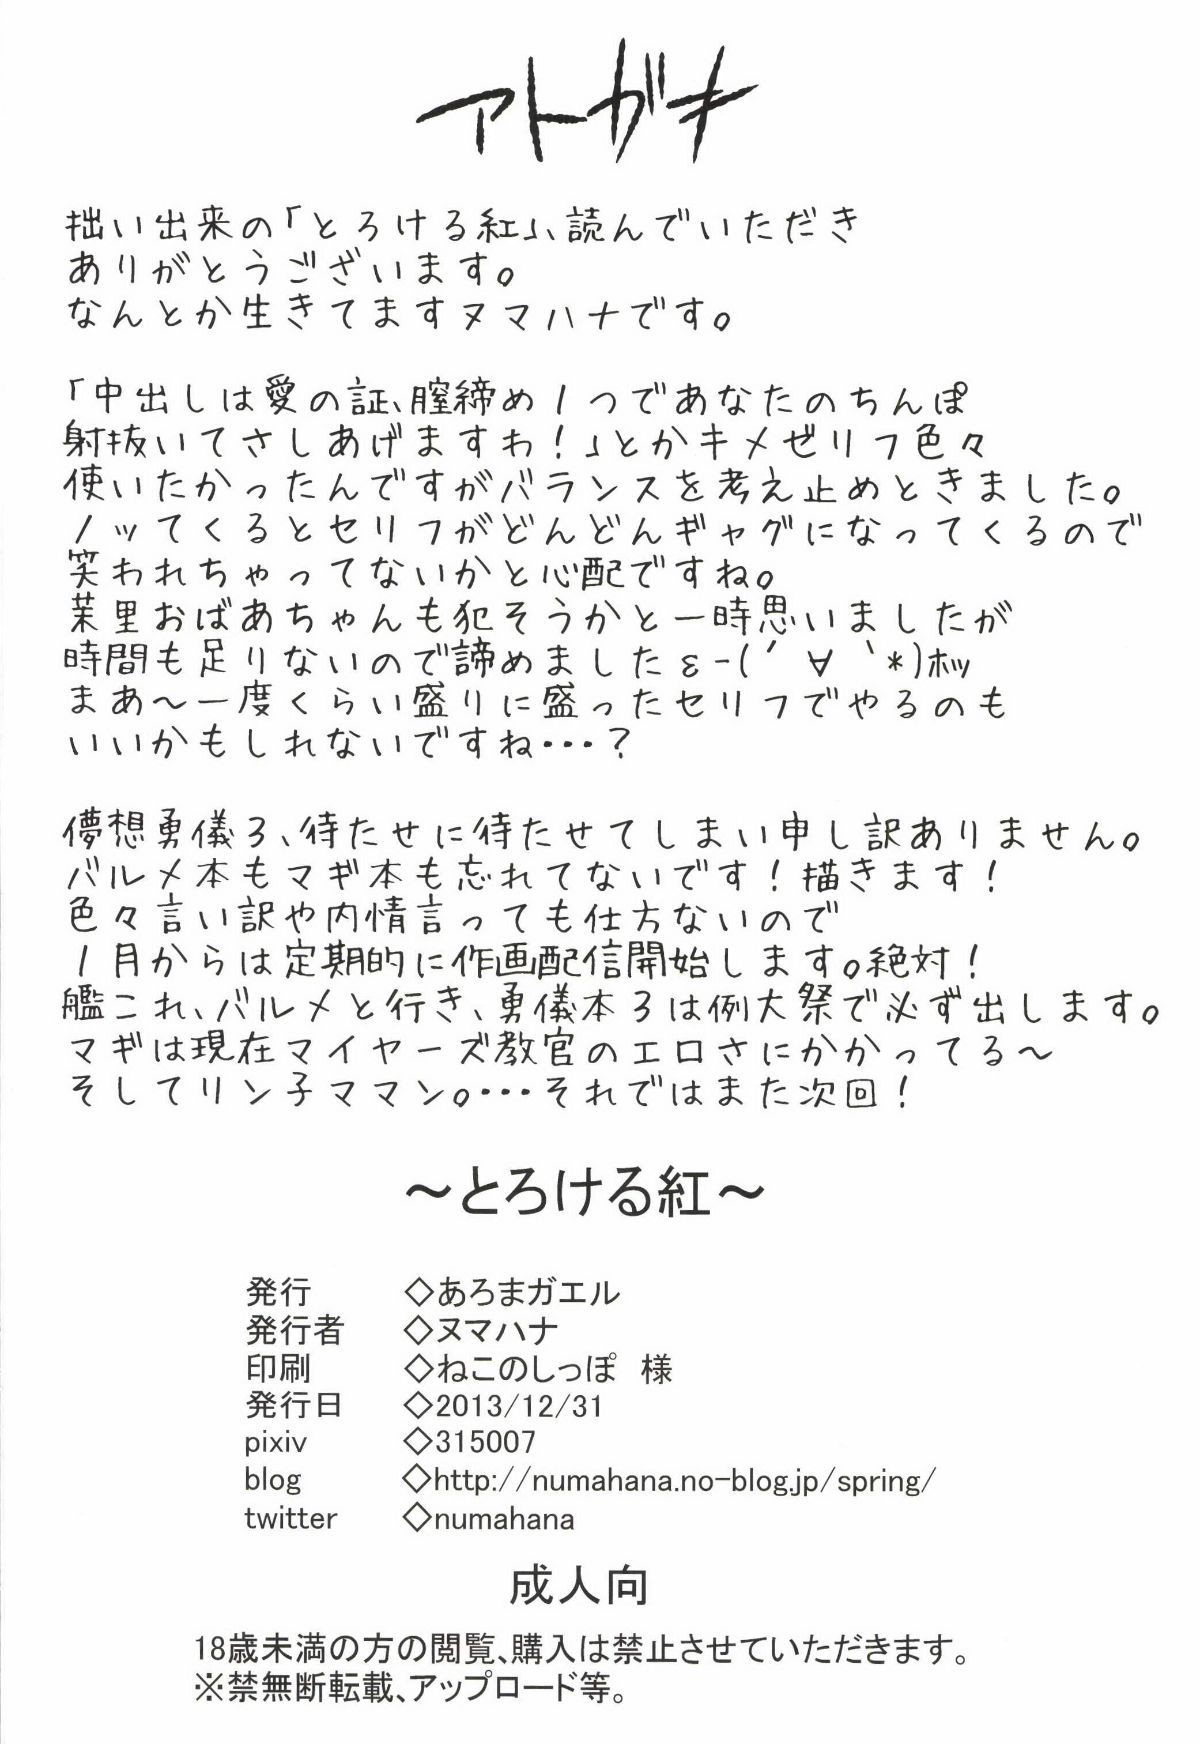 アトガキ
拙い出来の「とろける紅」、読んでいただき
ありがとうございます。
なんとか生きてますヌマハナです。
「中出しは愛の証、膣締め1つであなたのちんぽ
射抜いてさしあげますわ!」とかキメゼリフ色々
使いたかったんですがバランスを考え止めときました。
ノッてくるとセリフがどんどんギャグになってくるので
笑われちゃってないかと心配ですね。
茉里おばあちゃんも犯そうかと一時思いましたが
時間も足りないので諦めましたε-(´∀`*)ホッ
まあ〜一度くらい盛りに盛ったセリフでやるのも
いいかもしれないですね・・・?
儚想勇儀3、待たせに待たせてしまい申し訳ありません。
バルメ本もマギ本も忘れてないです!描きます!
色々言い訳や内情言っても仕方ないので
1月からは定期的に作画配信開始します。絶対!
艦これ、バルメと行き、勇儀本3は例大祭で必ず出します。
マギは現在マイヤーズ教官のエロさにかかってる〜
そしてリン子ママン。・・・それではまた次回!
〜とろける紅〜
発行 ◇あろまガエル
発行者 ◇ヌマハナ
印刷 ◇ねこのしっぽ 様
発行日 ◇2013/12/31
pixiv ◇315007
blog ◇http://numahana.no-blog.jp/spring/
twitter ◇numahana
成人向
18歳未満の方の閲覧、購入は禁止させていただきます。
※禁無断転載、アップロード等。